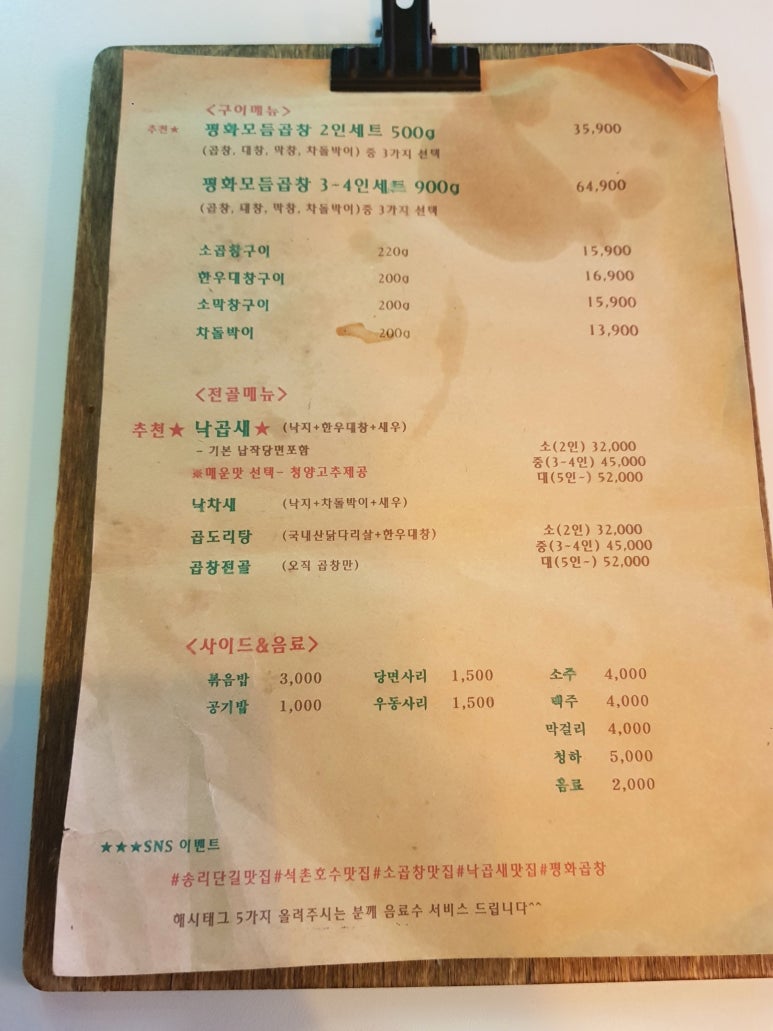 <구이메뉴>
추천★ 평화모듬곱창 2인세트 500g 35,900
(곱창, 대창, 막창, 차돌박이) 중 3가지 선택
평화모듬곱창 3-4인세트 900g 64,900
(곱창, 대창, 막창, 차돌박이)중 3가지 선택
소곱창구이 220g 15,900
한우대창구이 200g 16,900
소막창구이 200g 15,900
차돌박이 200g 13,900
<전골메뉴>
추천★ 낙곱새★ (낙지+한우대창+새우)
- 기본 납작당면포함 소(2인) 32,000
중(3-4인) 45,000
※매운맛 선택- 청양고추제공 대(5인~) 52,000
낙차새 (낙지+차돌박이+새우)
곱도리탕 (국내산닭다리살+한우대창) 소(2인) 32,000
중(3-4인) 45,000
곱창전골 (오직 곱창만) 대(5인~) 52,000
<사이드&음료>
볶음밥 3,000 당면사리 1,500 소주 4,000
공기밥 1,000 우동사리 1,500 맥주 4,000
막걸리 4,000
청하 5,000
음료 2,000
★★★SNS 이벤트
#송리단길맛집#석촌호수맛집#소곱창맛집#낙곱새맛집#평화곱창
해시태그 5가지 올려주시는 분께 음료수 서비스 드립니다^^